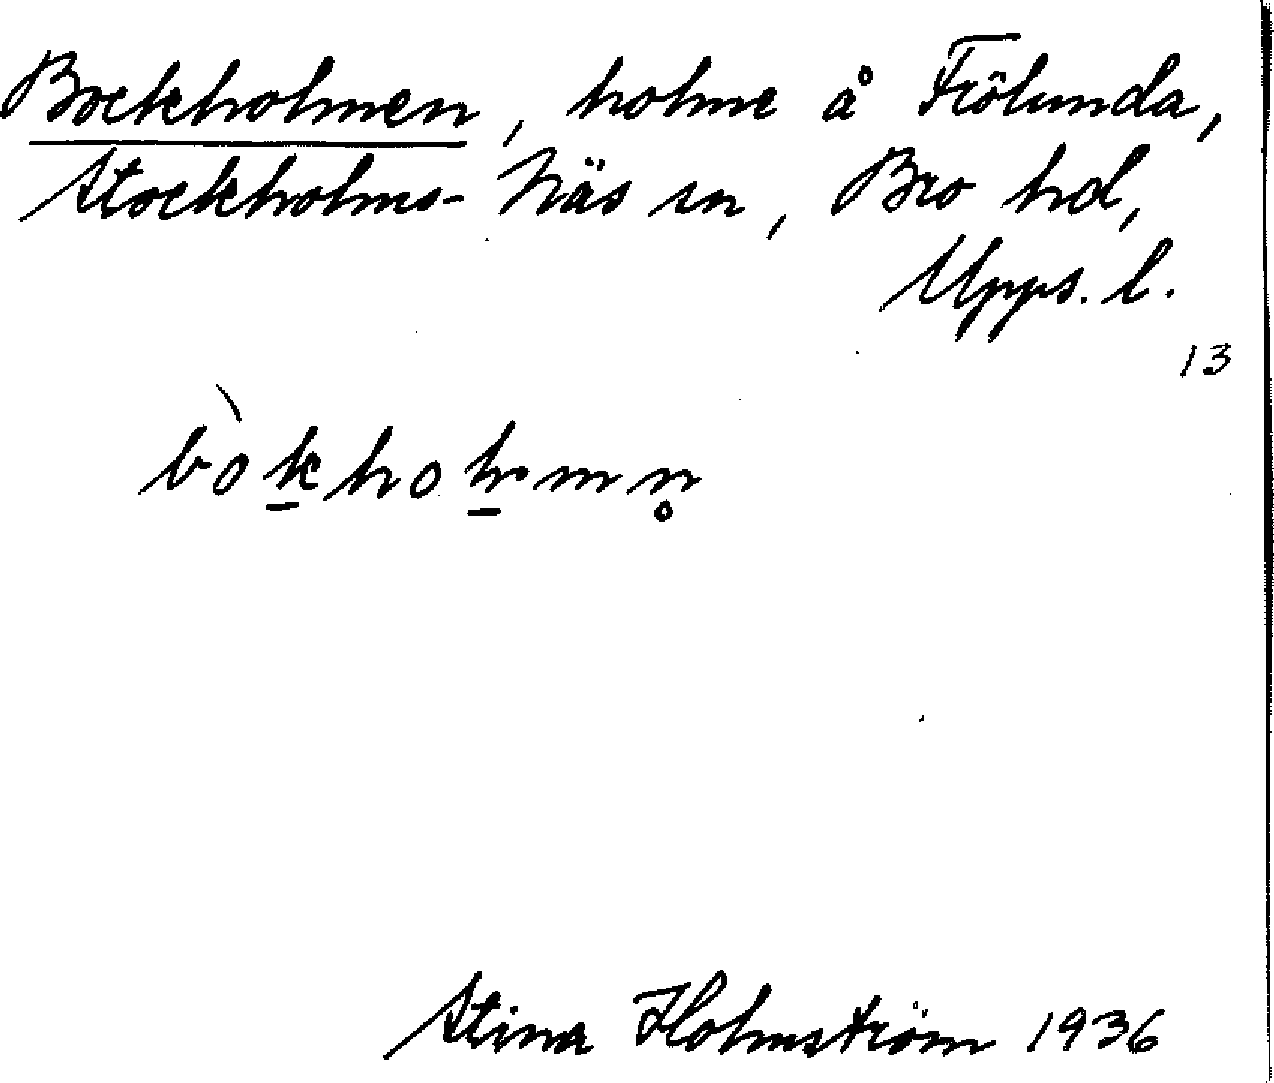 Bockholmen, holme å Frölunda,
Stockholms-Näs sn, Bro hd,
Upps. l.
13
bòk̲hol̲mn̥
Stina Holmström 1936